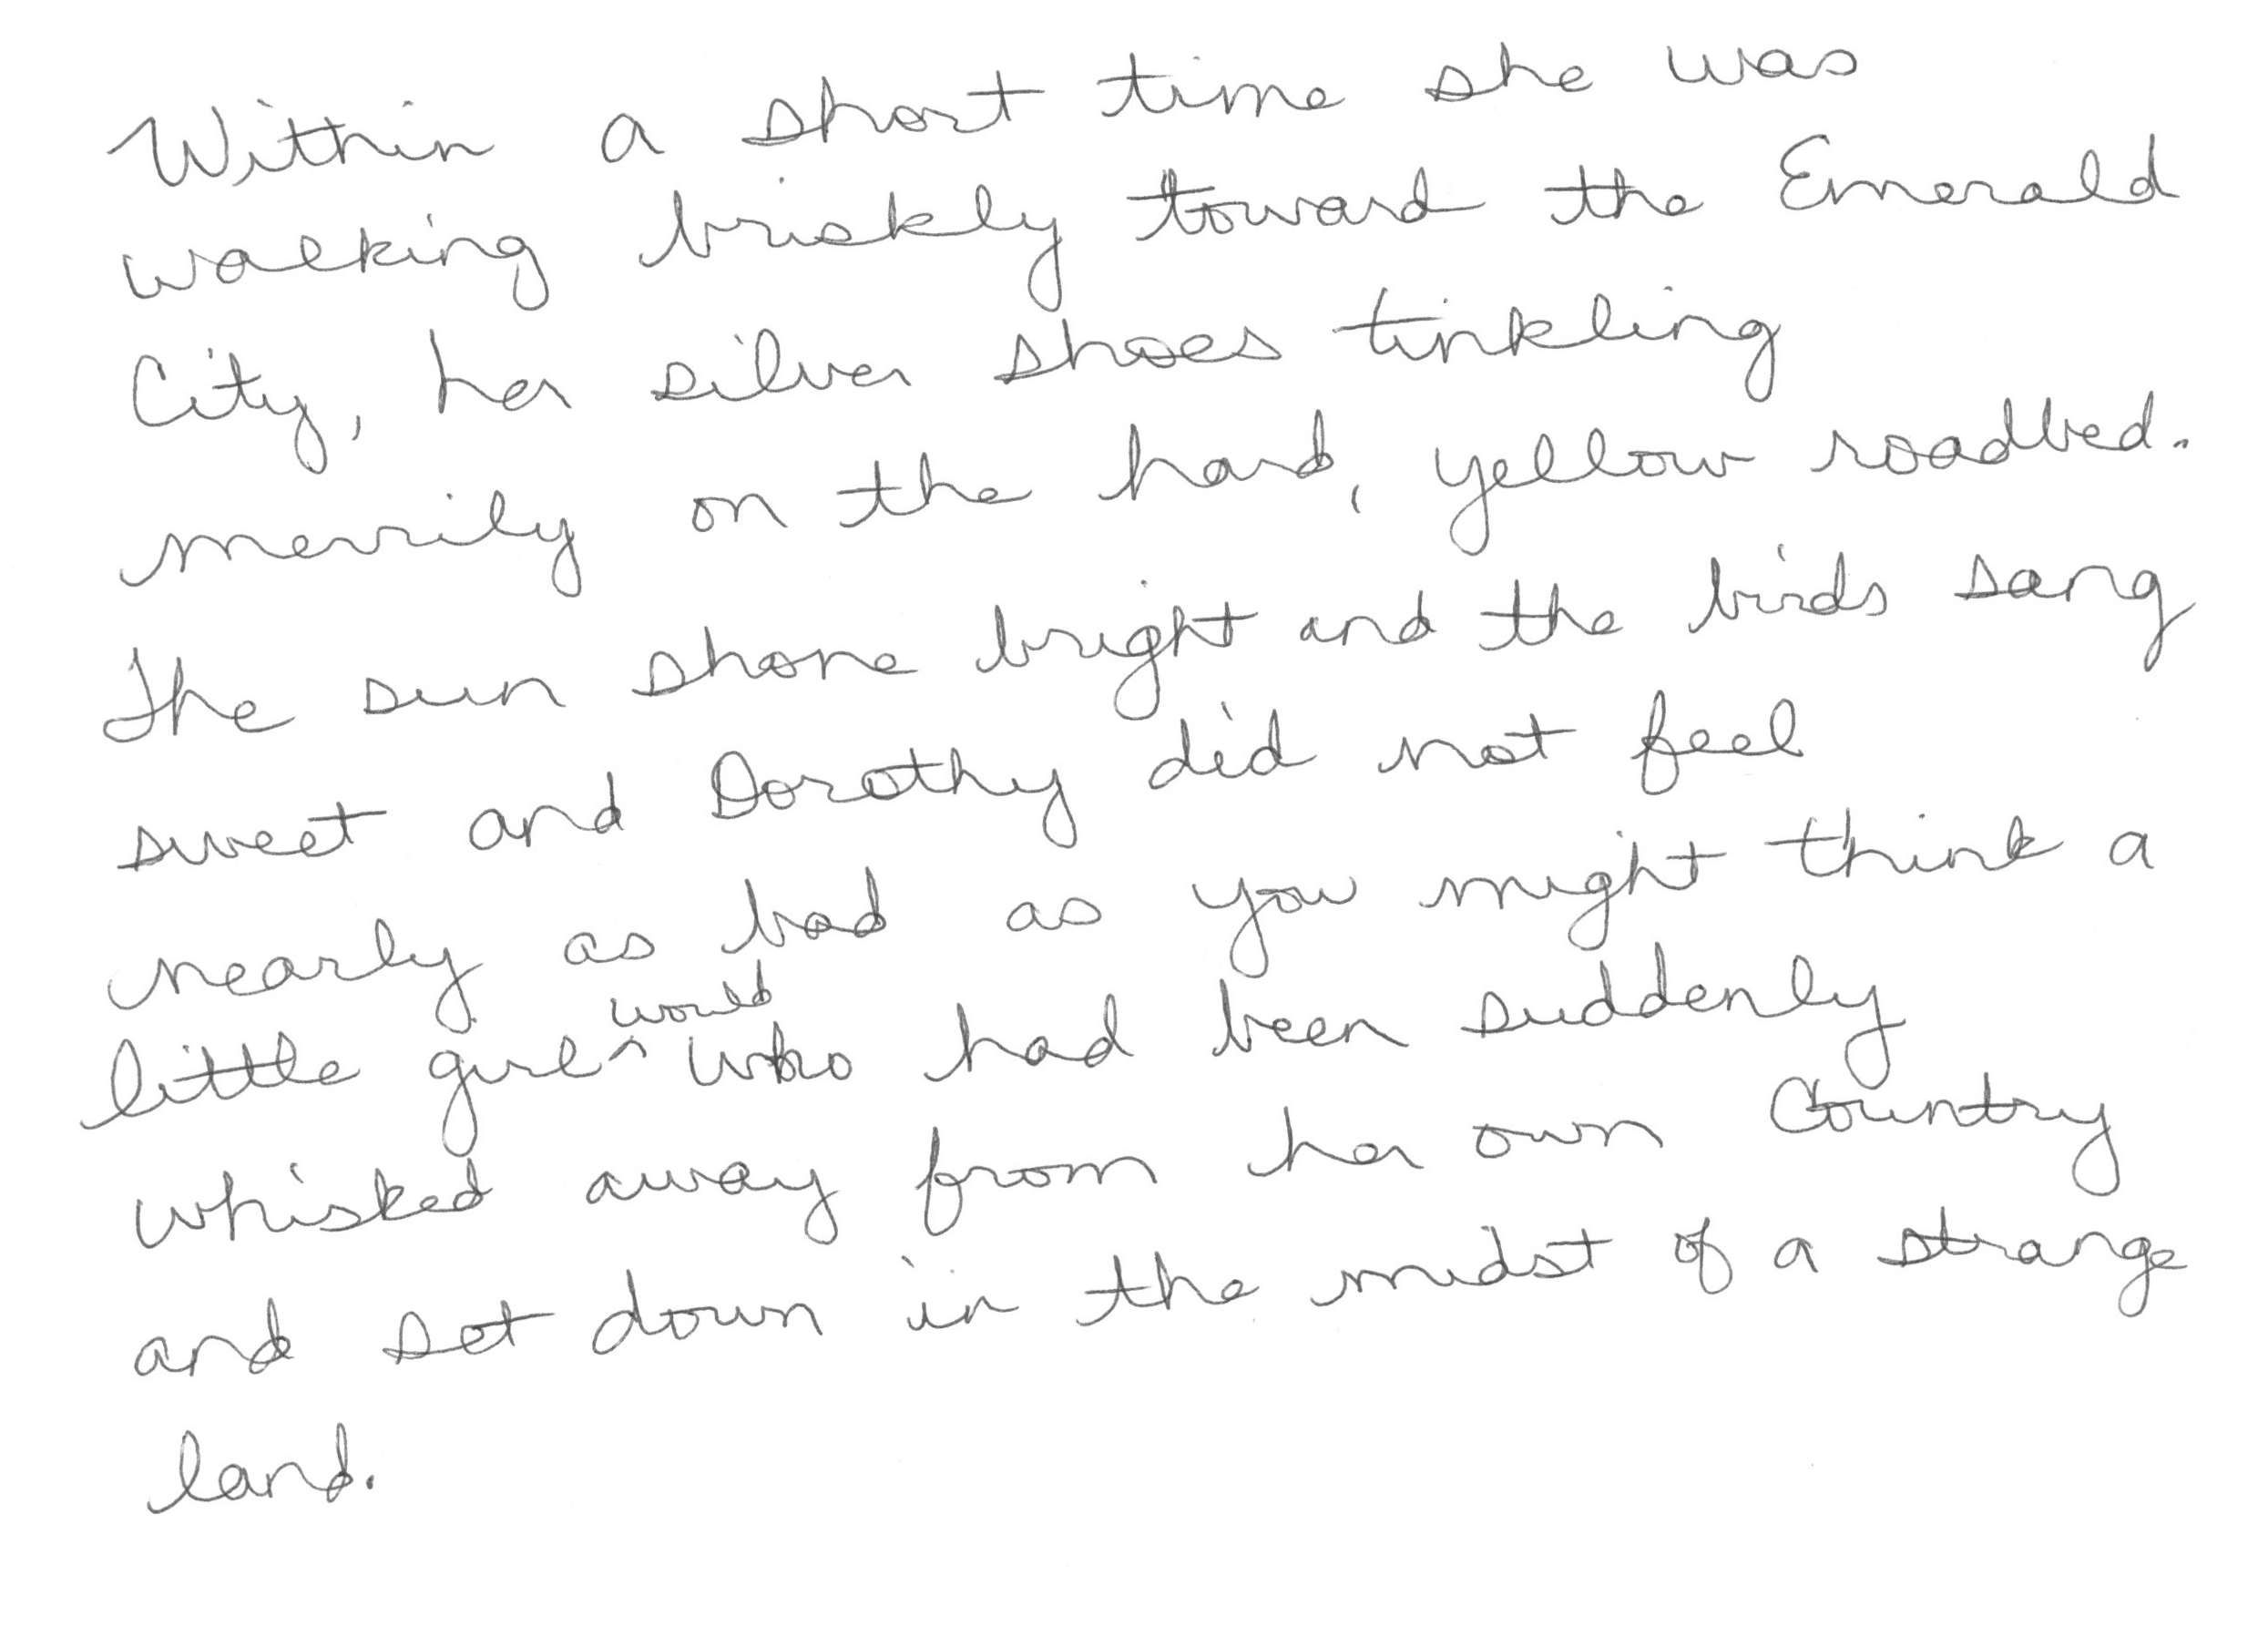 Within a short time she was
walking briskly toward the Emerald
City, her silver shoes tinkling
merrily on the hard, yellow roadbed.
The sun shone bright and the birds sang
sweet and Dorothy did not feel
nearly as bad as you might think a
little girl ^ would who had been suddenly
whisked away from her own Country
and set down in the midst of a strange
land.